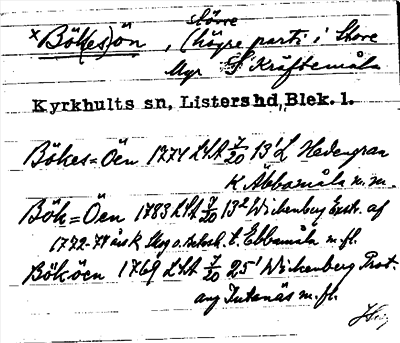 större
×Bök(es)ön, (högre parti i Store
Myr S Kräftemåla
Kyrkhults sn, Listers hd, Blek. l.
Bökes=Öen 1774 LSA 7/20 13' L Hedengran
K Abbamåla m.m.
Bök=Öen 1783 LSA 7/20 13² Wickenberg Extr. af
1772-74 års K Skog o. t. Ebbamåla m. fl.
Bököen 1769 LSA 7/20 25' Wickenberg Prot.
ang m. fl.